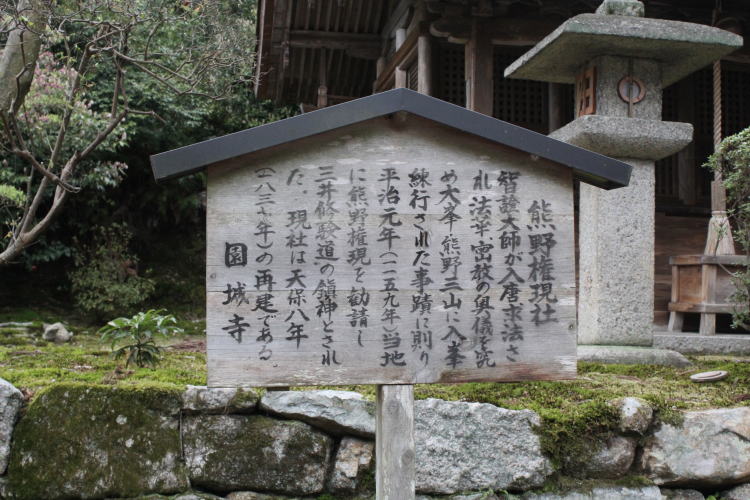 熊野権現社
智證大師が入唐求法さ
れ法華密教の奥儀を究
め大峯熊野三山に入峯
練行された事蹟に則り
平治元年(一一五九年)当地
に熊野権現を勧請し
三井修験道の鎮神とされ
た、現社は天保八年
(一八三七年)の再建である。
園城寺